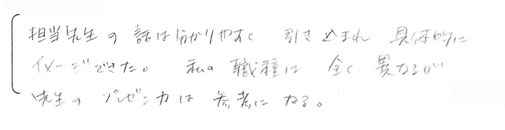 担当先生の話は分かりやすく 引き込まれ 具体的に
イメージできた。 私の職種は 全く異なるが
先生のプレゼン力は 参考になる。